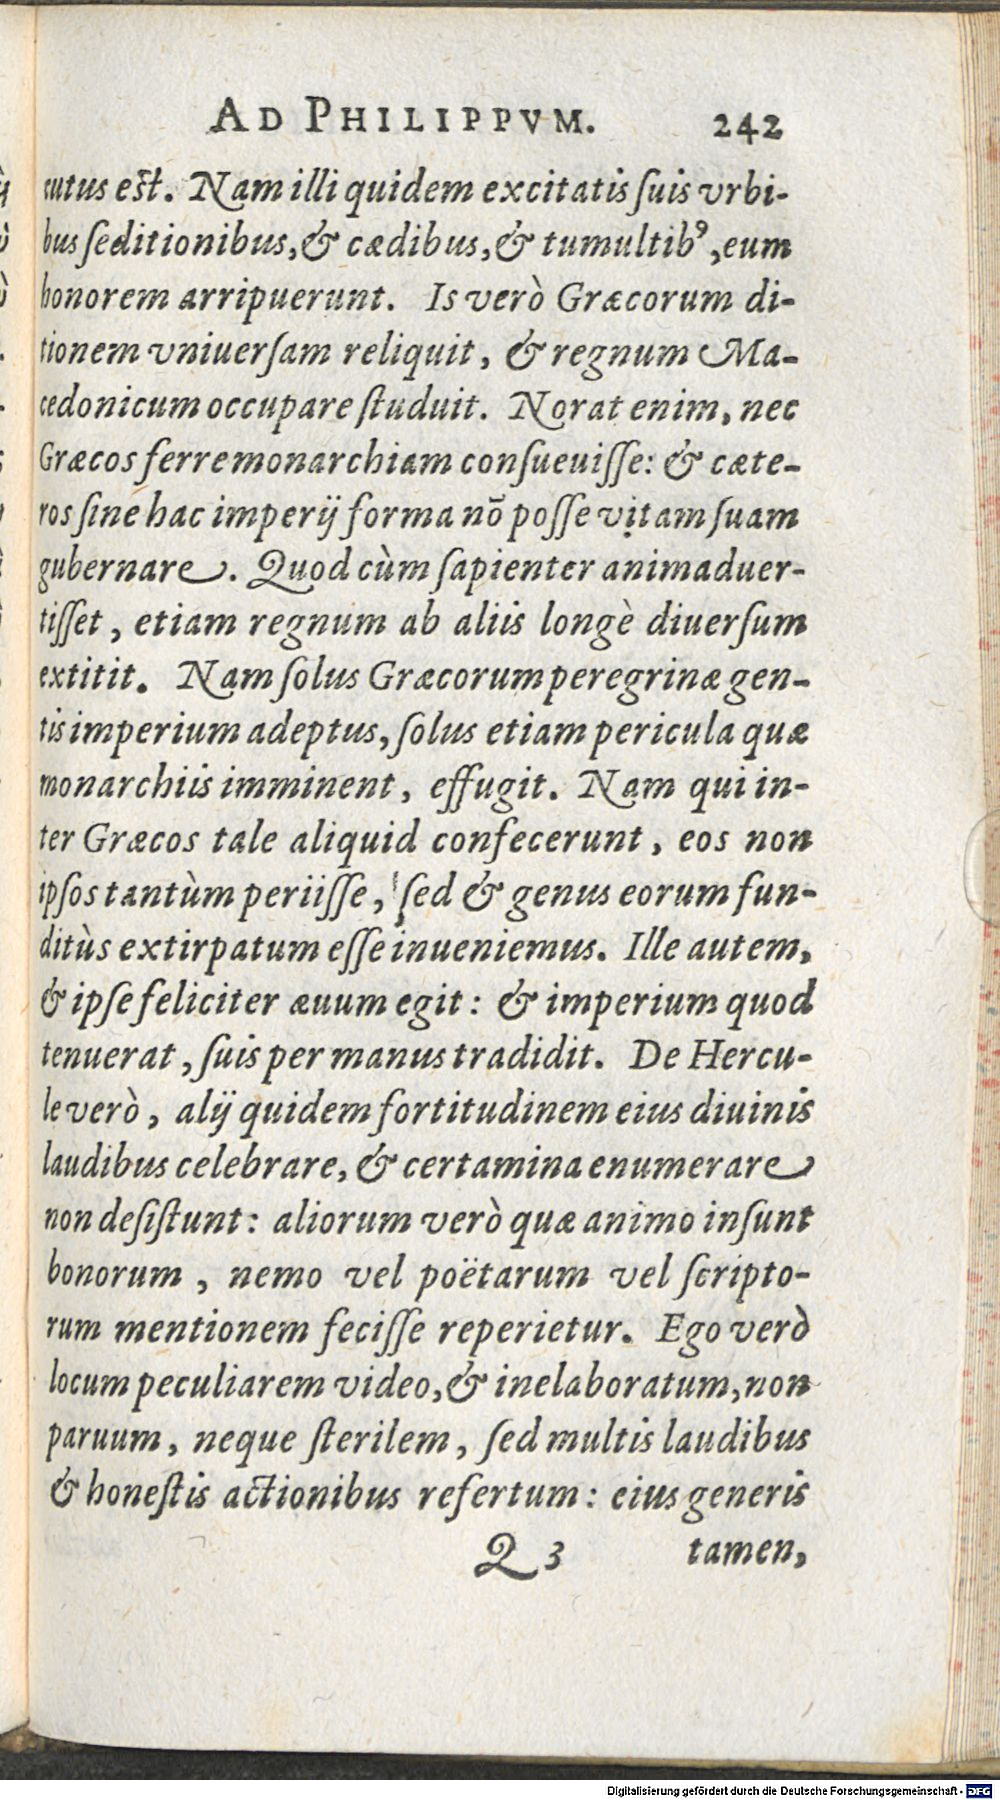 AD PHILIPPVM. 242
cutus est. Nam illi quidem excitatis suis vrbi-
bus seditionibus, & cædibus, & tumultibꝰ, eum
honorem arripuerunt. Is verò Græcorum di-
tionem vniuersam reliquit, & regnum Ma-
cedonicum occupare studuit. Norat enim, nec
Græcos ferre monarchiam consueuisse: & cæte-
ros sine hac imperij forma nō posse vitam suam
gubernare. Quod cùm sapienter animaduer-
tisset, etiam regnum ab aliis longè diuersum
extitit. Nam solus Græcorum peregrinæ gen-
tis imperium adeptus, solus etiam pericula quæ
monarchiis imminent, effugit. Nam qui in-
ter Græcos tale aliquid confecerunt, eos non
ipsos tantùm periisse, sed & genus eorum fun-
ditùs extirpatum esse inueniemus. Ille autem,
& ipse feliciter æuum egit: & imperium quod
tenuerat, suis per manus tradidit. De Hercu-
le verò, alij quidem fortitudinem eius diuinis
laudibus celebrare, & certamina enumerare
non desistunt: aliorum verò quæ animo insunt
bonorum, nemo vel poëtarum vel scripto-
rum mentionem fecisse reperietur. Ego verò
locum peculiarem video, & inelaboratum, non
paruum, neque sterilem, sed multis laudibus
& honestis actionibus refertum: eius generis
Q 3 tamen,
Digitalisierung gefördert durch die Deutsche Forschungsgemeinschaft - DFG